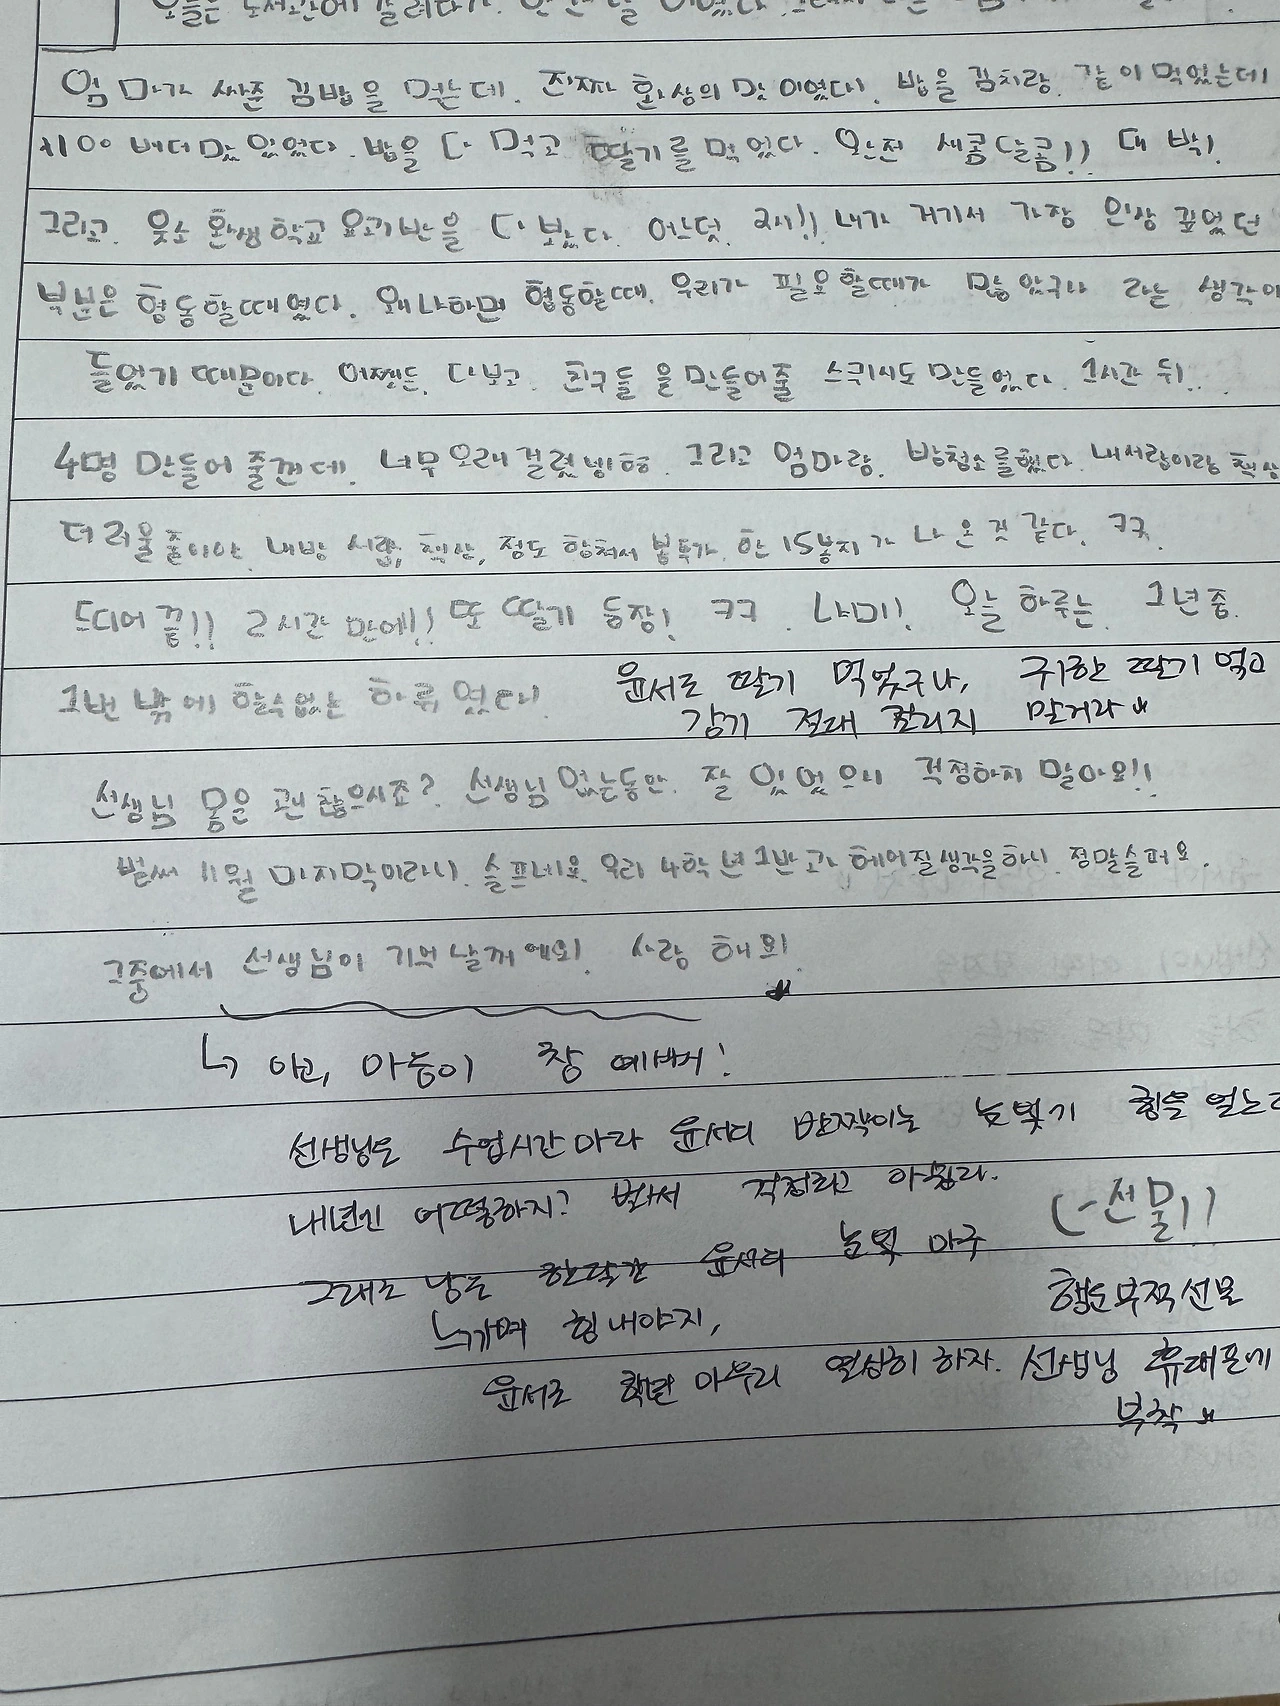 오늘은 도서관에
엄마가 싸준 김밥을 먹는데. 진짜 환상의 맛이였다. 밥을 김치랑. 같이 먹었는데
x100 배더맛있었다. 밥을 다 먹고 딸기를 먹었다. 완전 새콤달콤!! 대박!
그리고. 웃소 환생학교 요괴반을 다 봤다. 어느덧. 2시!! 내가 거기서 가장 인상 깊었던
부분은 협동할때였다. 왜냐하면 협동할때. 우리가 필요할때가 많았구나 라는 생각이
들었기 때문이다. 어쨌든. 다보고. 친구들 을 만들어줄 스퀴시도 만들었다. 1시간 뒤..
4명 만들어 줄껀데. 너무 오래걸렸넹ㅎ. 그리고 엄마랑. 방청소를했다. 내서랍이랑 책상
더러울줄이야. 내방 서랍, 책상, 정도 합쳐서 봉투가. 한 15봉지가 나온 것 같다. ㅋㅋ.
드디어 끝!! 2시간 만에!! 또 딸기 등장! ㅋㅋ. 냐미! 오늘 하루는. 1년중.
1번 밖에 할수없는 하루였다!
윤서도 딸기 먹었구나, 귀한 딸기 먹고
감기 절대 걸리지 말거라
선생님 몸은 괜찮으시죠? 선생님 없는동안. 잘 있었으니 걱정하지 말아요!!
벌써 11월 마지막이라니. 슬프네요. 우리 4학년 1반 고가 헤어질생각을하니 정말슬퍼요.
그중에서 선생님이 기억 날꺼예요! 사랑해요!
↳ 아고, 마음이 참 예뻐!
선생님은 수업시간마다 윤서의 반짝이는 눈빛기 힘을 얻는데
내년엔 어떻하지? 벌써 걱정되고 아쉽다.
그래도 남은 한달간 윤서의 눈빛 마구
느끼며 힘내야지,
(-선물!!
행운부적선물
윤서도 학년 마무리 열심히 하자. 선생님 휴대폰에
부착